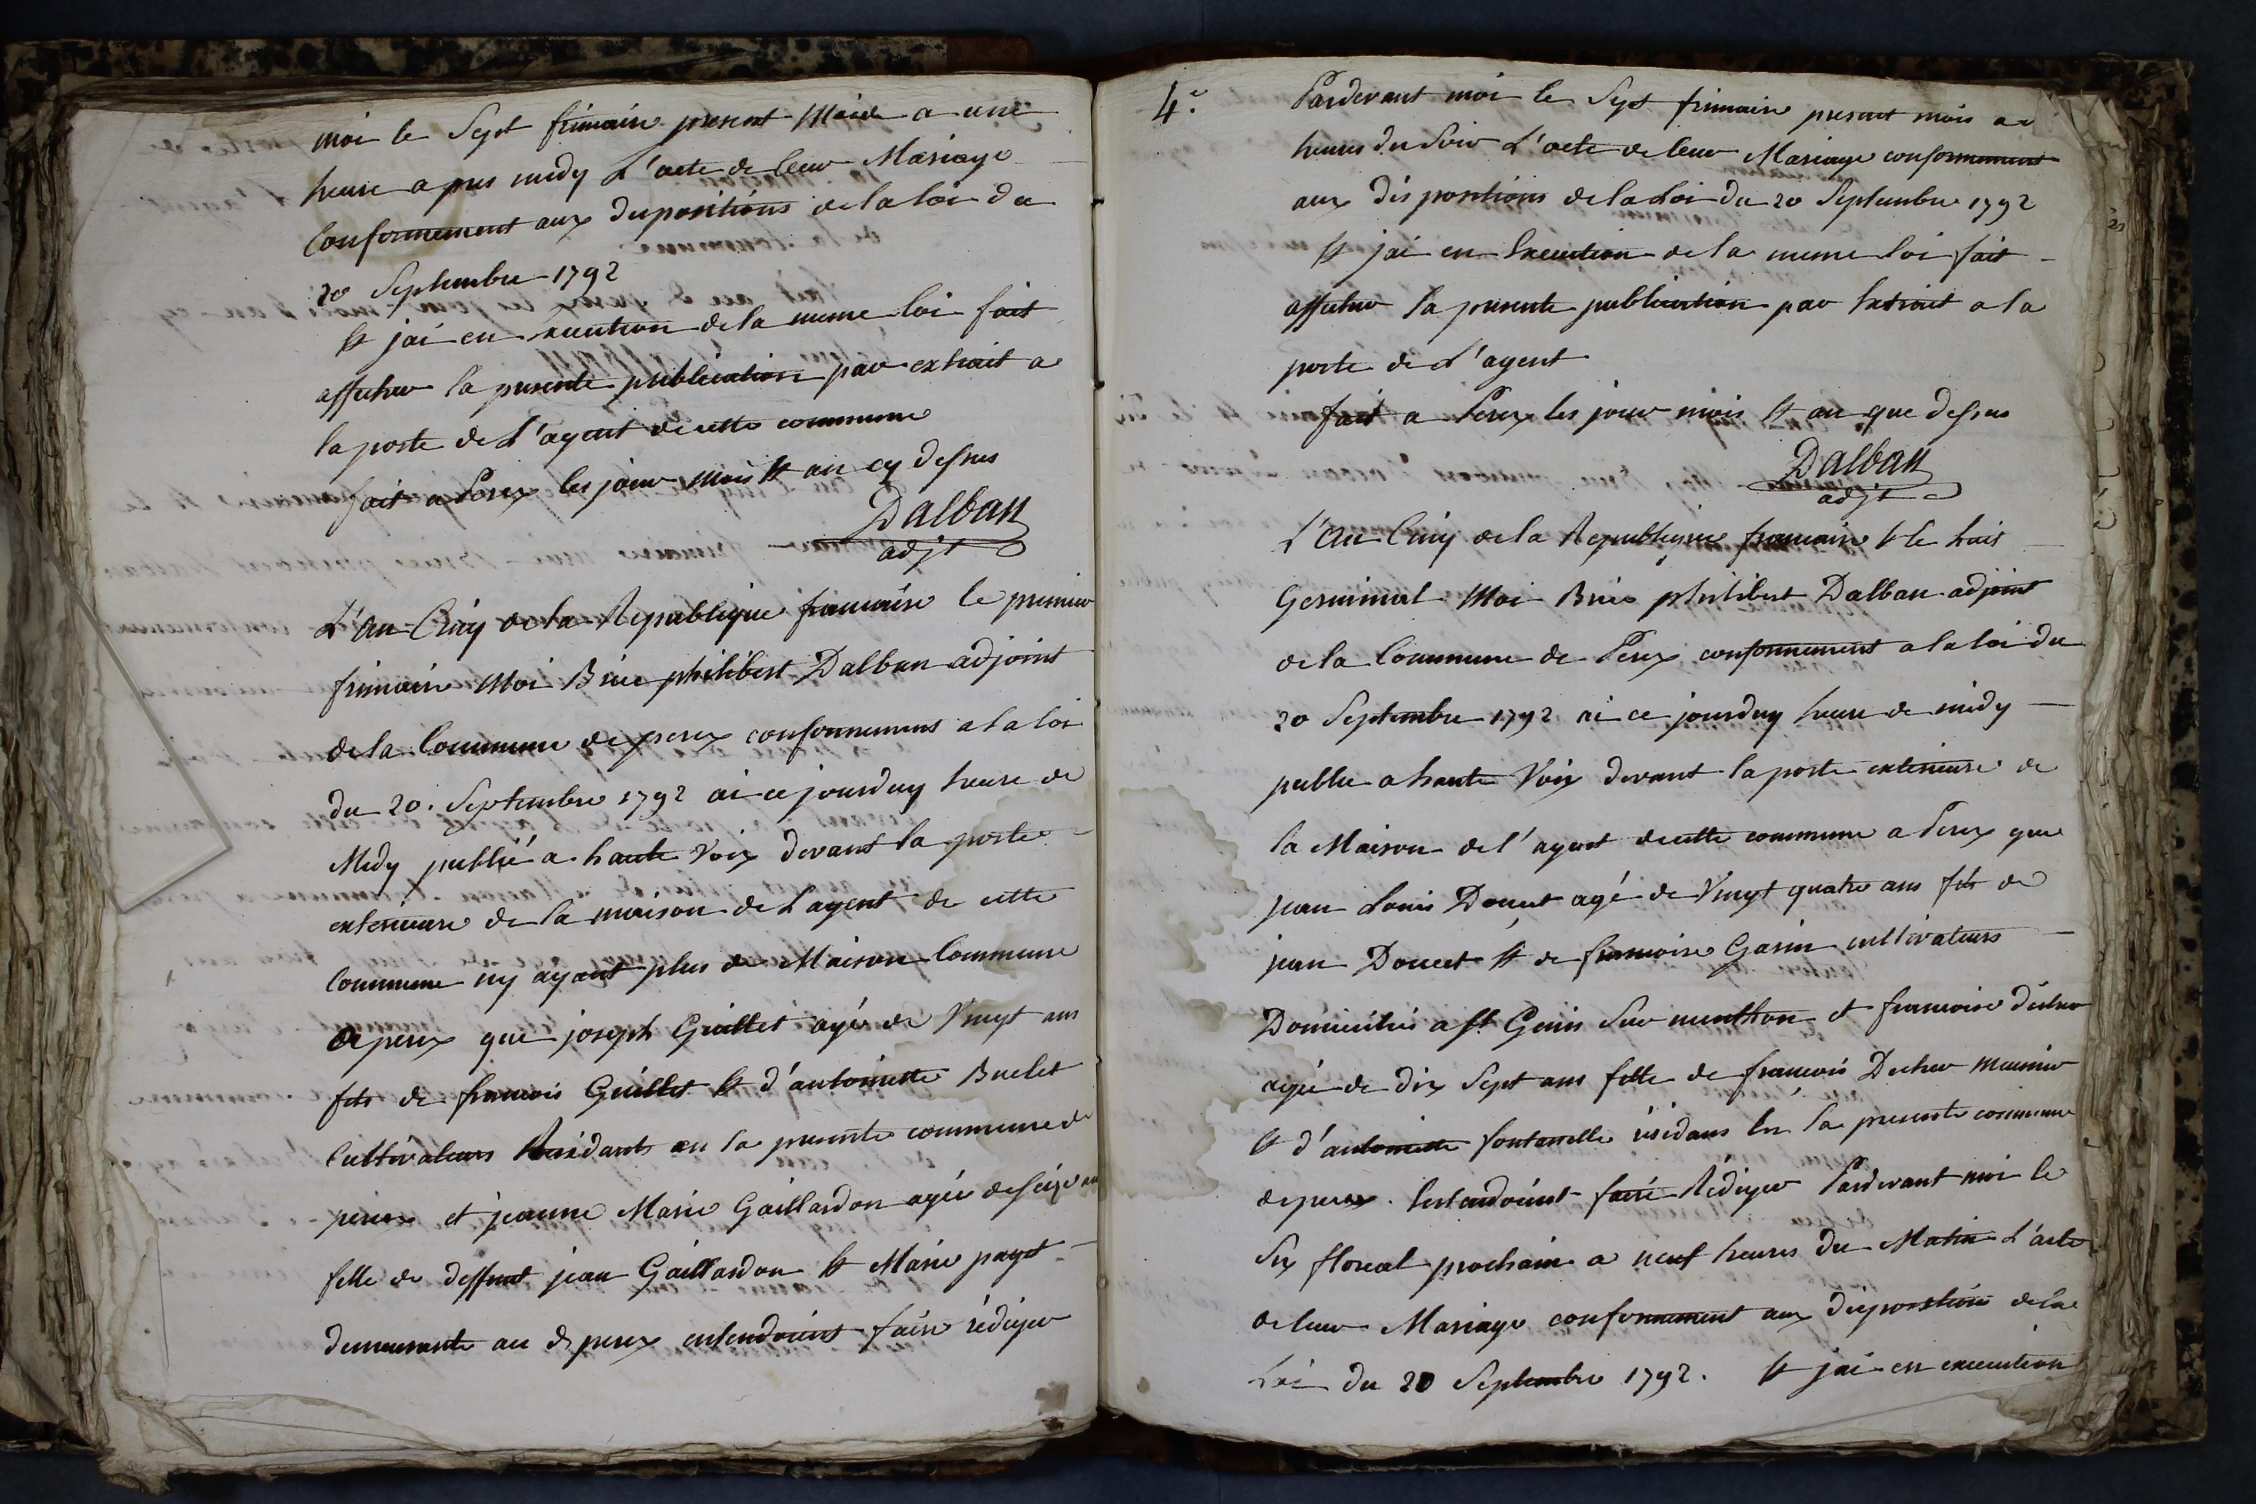 moi le Sept frimaire present Mois a une
heure apres midy L'acte de leur Mariage
Conformement aux dispositions de la loi du
20 Septembre 1792
Et jai en execution de la meme loi fait
afficher la presente publication par extrait a
la porte de L'agent de cette commune
fait a Perex les jour mois Et an cy dessus
Dalban
adjt
L'An Cinq de la Republique francaise le premier
frimaire Moi Brice philibert Dalban adjoint
de la Commune de perex conformement a la loi
du 20. Septembre 1792 ai ce jourduy heure de
Midy publié a haute Voix devant la porte
exterieure de la maison de L'agent de cette
Commune ny ayant plus de Maison Commune
de perex que joseph Guillet agé de Vingt ans
fils de francois Guillet Et d'antoinette Buclet
Cultivateurs Residants en la presente commune de
perex et jeanne Marie Gaillardon agée de seize ans
fille de deffunt jean Gaillardon Et Marie payet
demeurante au d perex entendoient faire rédiger
4e.
Pardevant moi le Sept frimaire present mois a
heures du Soir L'acte de leur Mariage conformement
aux dispositions de la Loi du 20 Septembre 1792
Et jai en Execution de la meme loi fait
afficher la presente publication par Extrait a la
porte de L'agent
fait a Perex les jour mois Et an que dessus
Dalban
adjt
L'An Cinq de la Republique francaise Et le huit
Germinal Moi Brice philibert Dalban adjoint
de la Commune de Perex conformement a la loi du
20 Septembre 1792 ai ce jourduy heure de midy
publie a haute Voix devant la porte exterieure de
la Maison de l'agent de cette commune a Perex que
jean Louis Doucet agé de Vingt quatre ans fils de
jean Doucet Et de francoise Garin cultivateurs
Domiciliés a St Genis Sur menthon et francoise décher
agée de dix Sept ans fille de francois Decher meunier
Et d'antoinette fontanelle résidans En la presente commune
de perex. Entendoient faire Rédiger Pardevant moi le
Six floreal prochain a neuf heures du Matin L'acte
de leur Mariage conformement aux disposition de la
Loi du 20 Septembre 1792. Et jai en execution